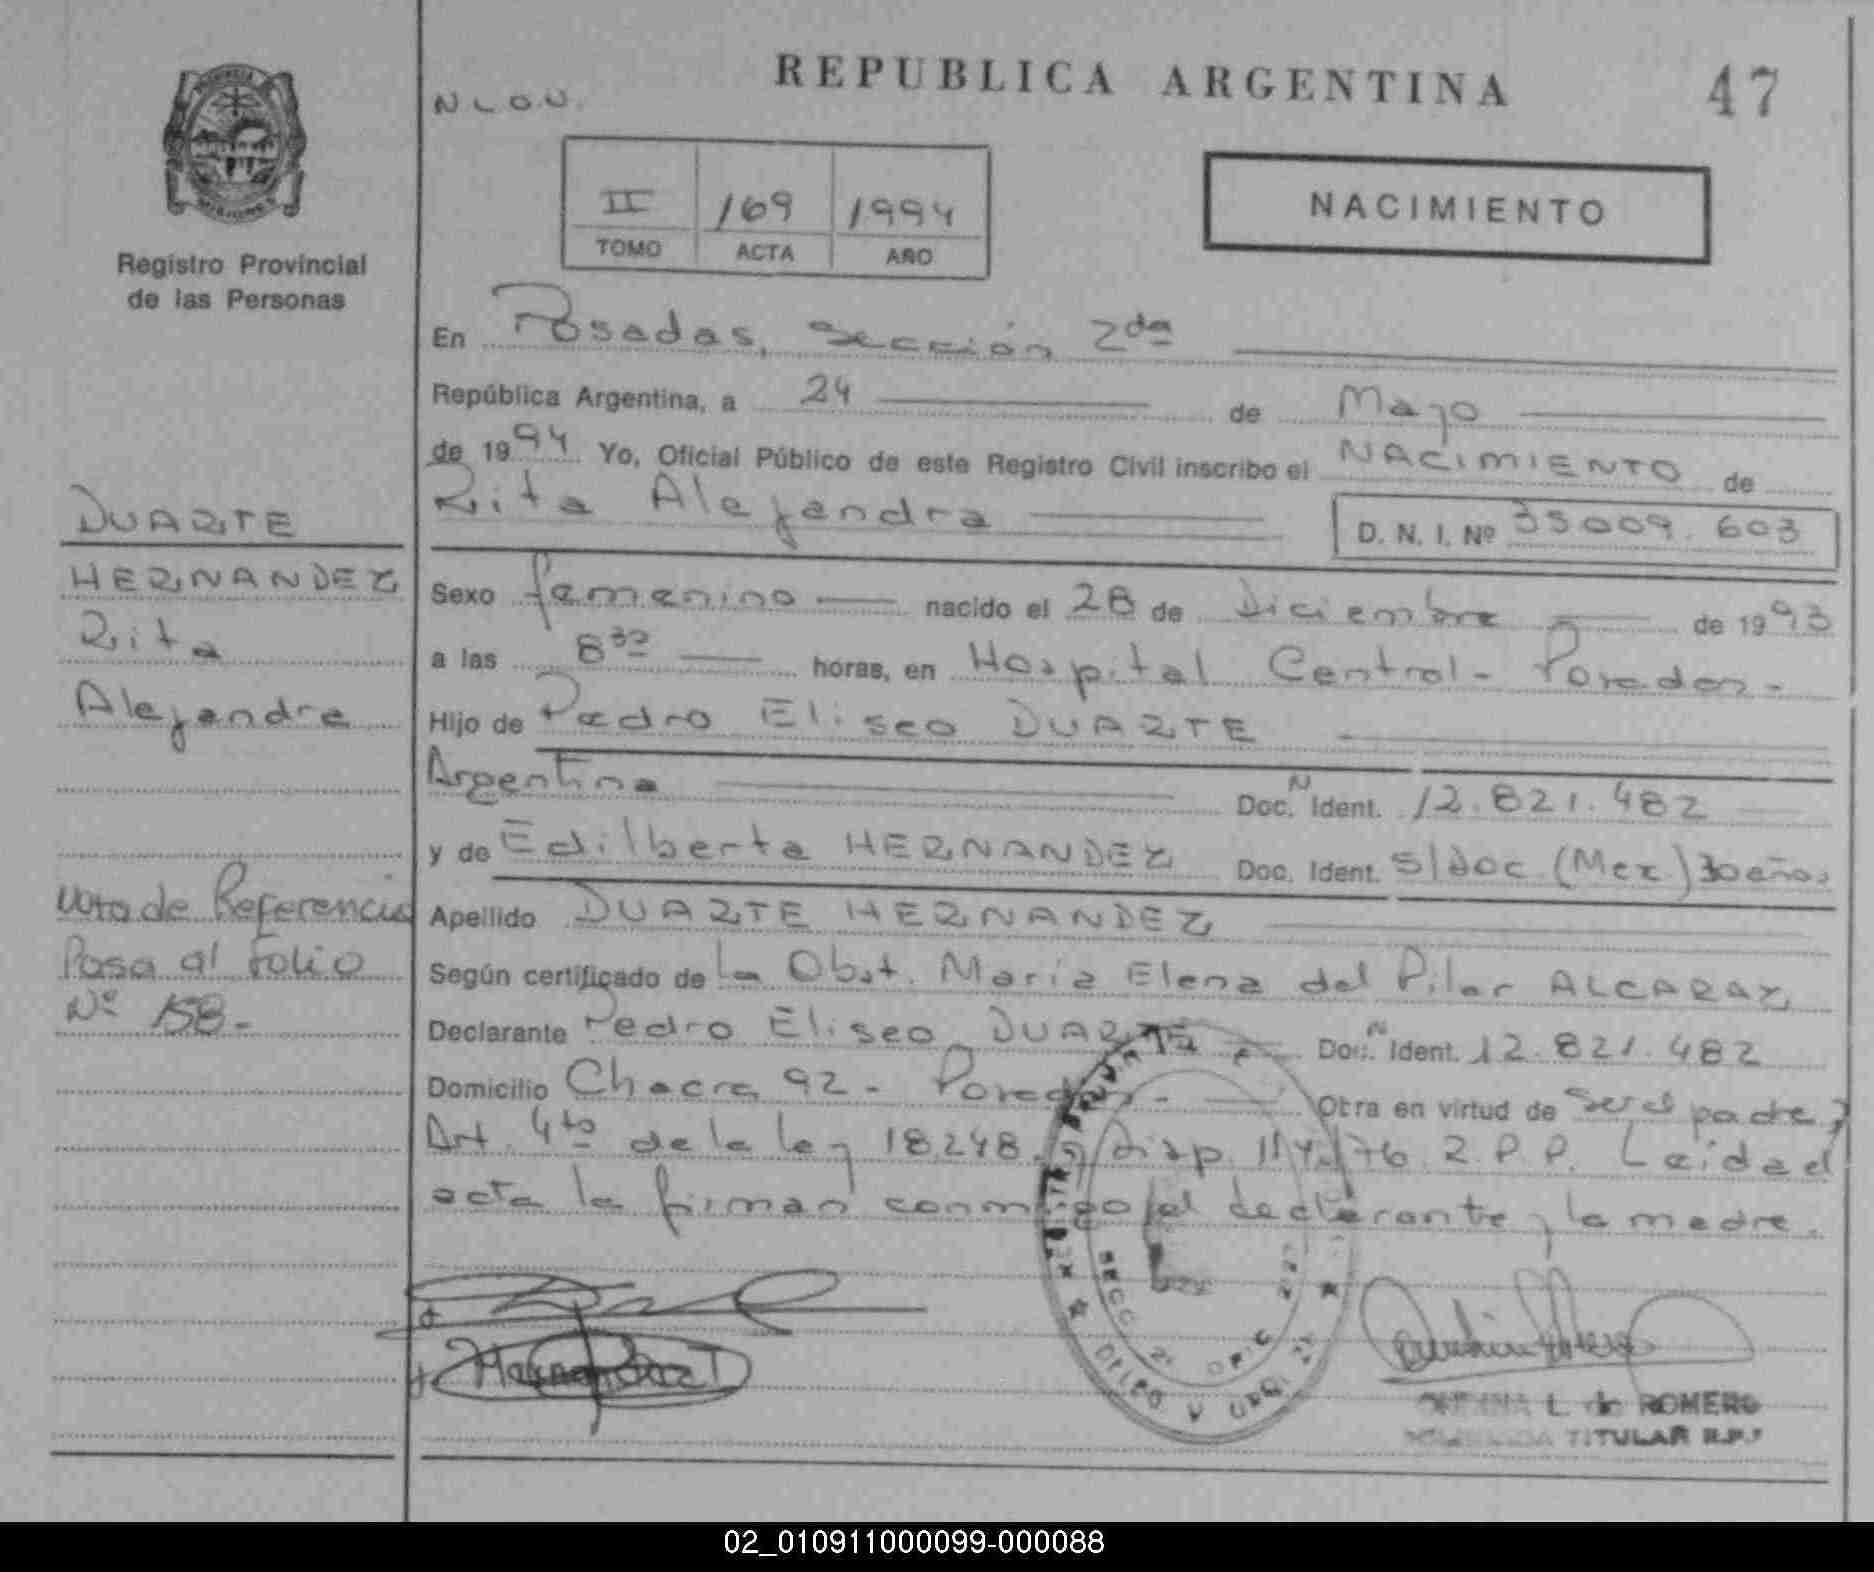 REPUBLICA ARGENTINA
47
N L O U.
II 169 1994
TOMO ACTA AÑO
NACIMIENTO
Registro Provincial
de las Personas
DUARTE
HERNANDEZ
Rita
Alejandra
Nota de Referencia
Pasa al Folio
Nº 158.-
En Posadas, Sección 2da
República Argentina, a 24 de Mayo
de 1994 Yo, Oficial Público de este Registro Civil inscribo el NACIMIENTO de
Rita Alejandra D. N. I. Nº 35009.603
Sexo femenino nacido el 28 de Diciembre de 1993
a las 8 30 horas, en Hospital Central - Posadas -
Hijo de Pedro Eliseo DUARTE
Argentina Doc. N Ident. 12.821.482
y de Edilberta HERNANDEZ Doc. Ident. S/doc (Mex.) 30 años
Apellido DUARTE HERNANDEZ
Según certificado de la Obst. María Elena del Pilar ALCARAZ
Declarante Pedro Eliseo DUARTE Doc. N Ident. 12.821.482
Domicilio Chacra 92 - Posadas - Obra en virtud de ser el padre y
Art. 4to de la ley 18.248 y Disp. 114/76 R.P.P. Leida el
acta la firman conmigo el declarante y la madre.
SECC 2ª
L. de ROMERO
TITULAR R.P.P
02_010911000099-000088